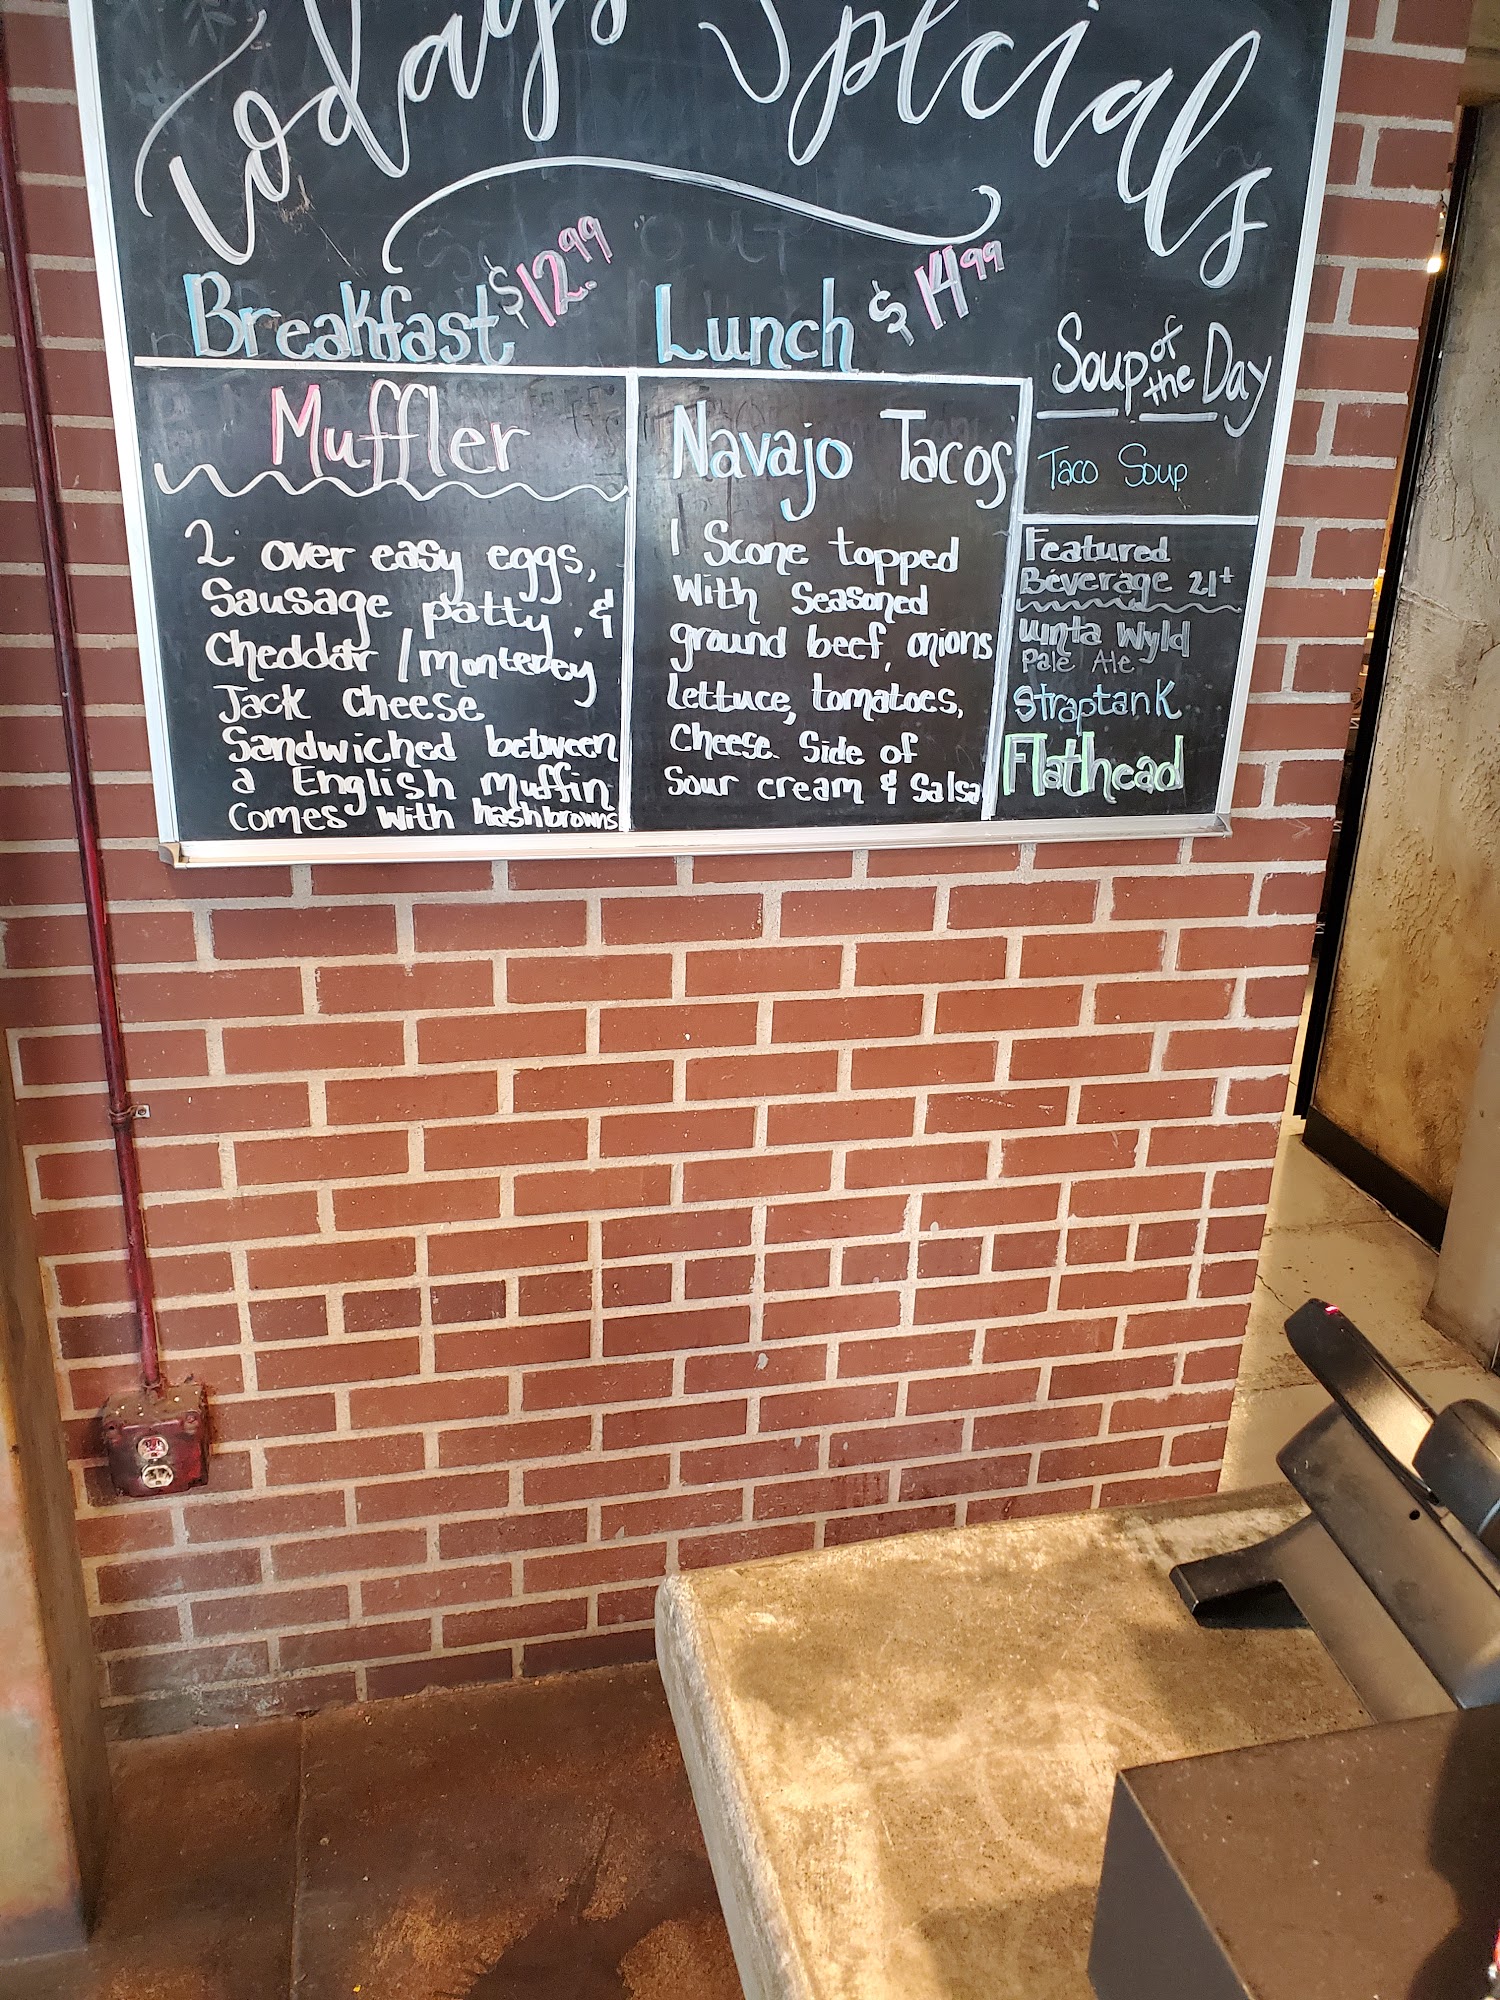 Today's Specials
Breakfast $12.99
Muffler
2 over easy eggs,
Sausage patty, &
Cheddar / Monterey
Jack Cheese
Sandwiched between
a English Muffin
Comes with hashbrowns
Lunch $14.99
Navajo Tacos
1 Scone topped
with Seasoned
ground beef, onions
lettuce, tomatoes,
Cheese. Side of
Sour cream & Salsa
Soup of the Day
Taco Soup
Featured
Beverage 21+
Uinta Wyld
Pale Ale
Straptank
Flathead